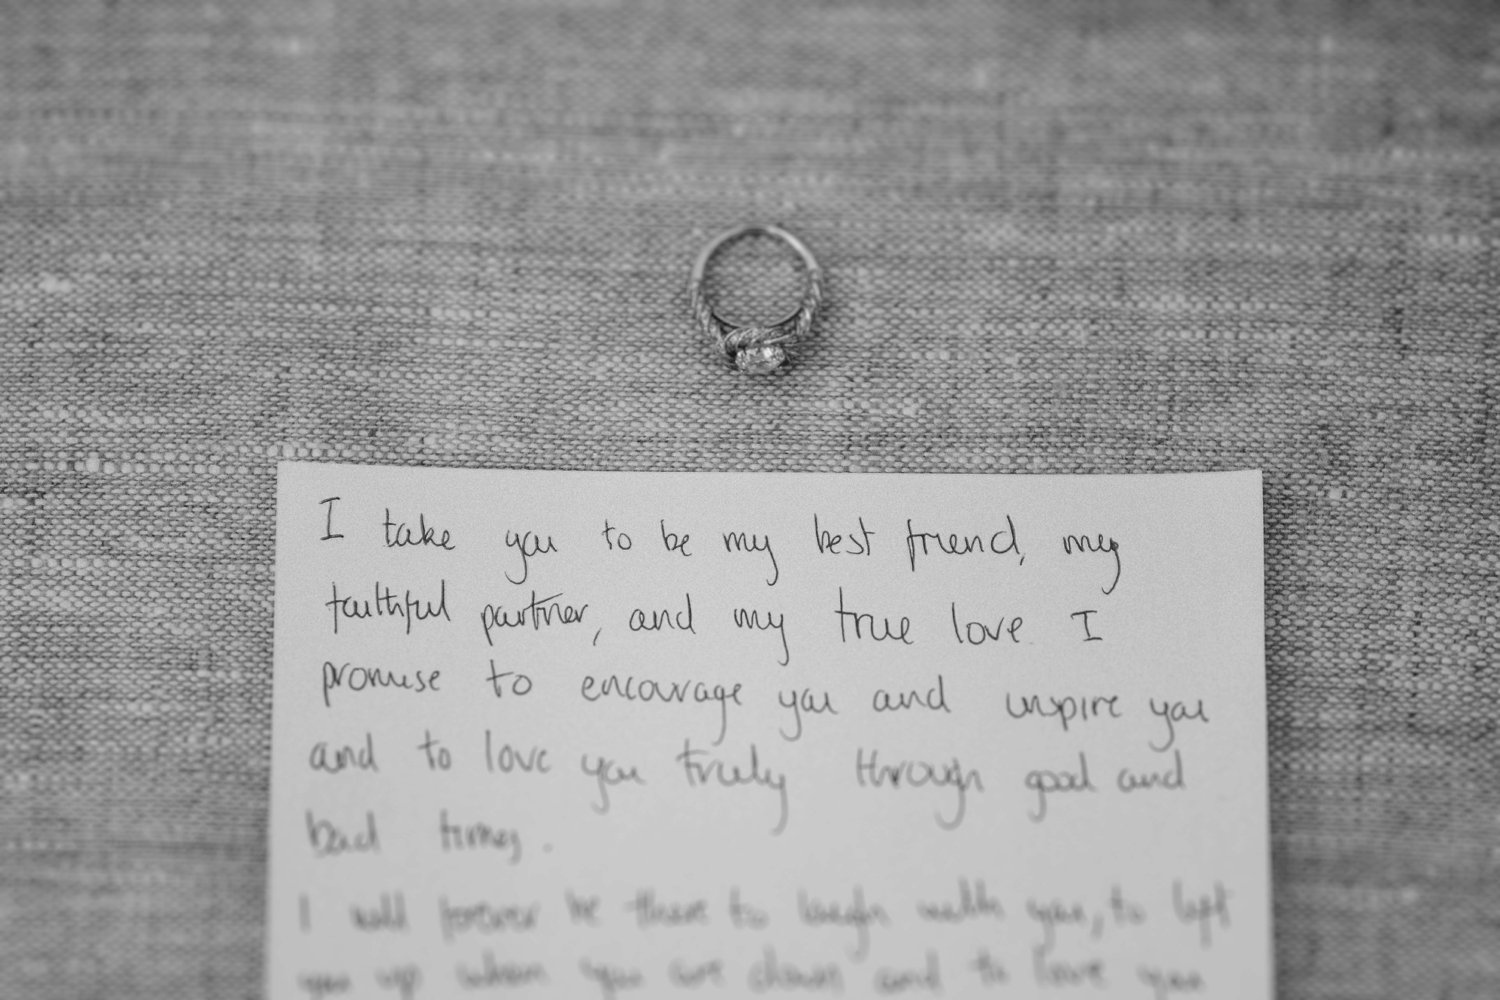 I take you to be my best friend, my
faithful partner, and my true love. I
promise to encourage you and inspire you
and to love you truly through good and
bad times.
I will forever be there to laugh with you, to lift
you up when you are down and to love you